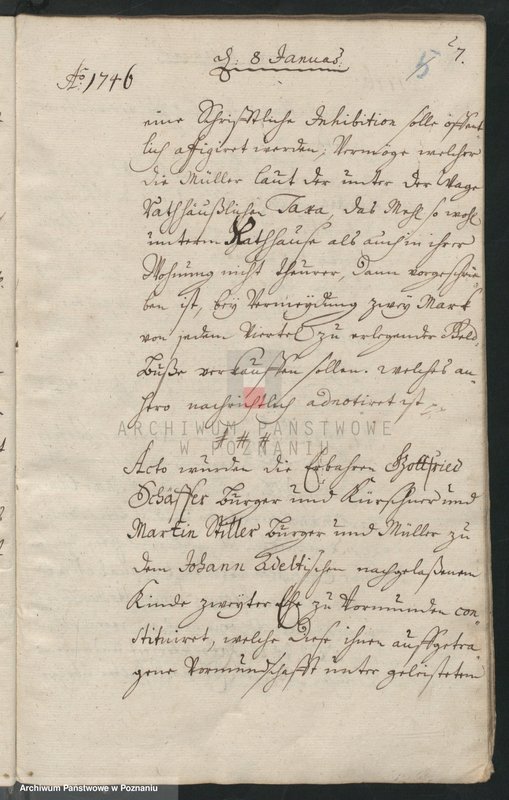 d: 8 Januar: 7.
Aō. 1746
eine Schrifftliche Inhibition solle öffent
lich affigiret werden; Vermöge welcher
die Müller laut der unter der Wage
Rathhäußlichen Taxa, das Mehl so wohl
unterm Rathhause als auch in ihrer
Wohnung nicht theurer, dann vorgeschrie
ben ist, bey Vermeydung zwey Mark
von jedem Viertel zu erlegender Geld
Buße verkauffen sollen. welches an
hero nachrichtlich adnotiret ist
ARCHIWUM PAŃSTWOWE
W POZNANIU
Acto wurden die Erbahren Gottfried
Schäffer Bürger und Kürschner und
Martin Stiller Bürger und Müller zu
dem Johann Adeltischen nachgelaßenem
Kinde zweyter Ehe zu Vormunden con
stituiret, welche diese ihnen auffgetra
gene Vormundschafft unter geleistetem
Archiwum Państwowe w Poznaniu